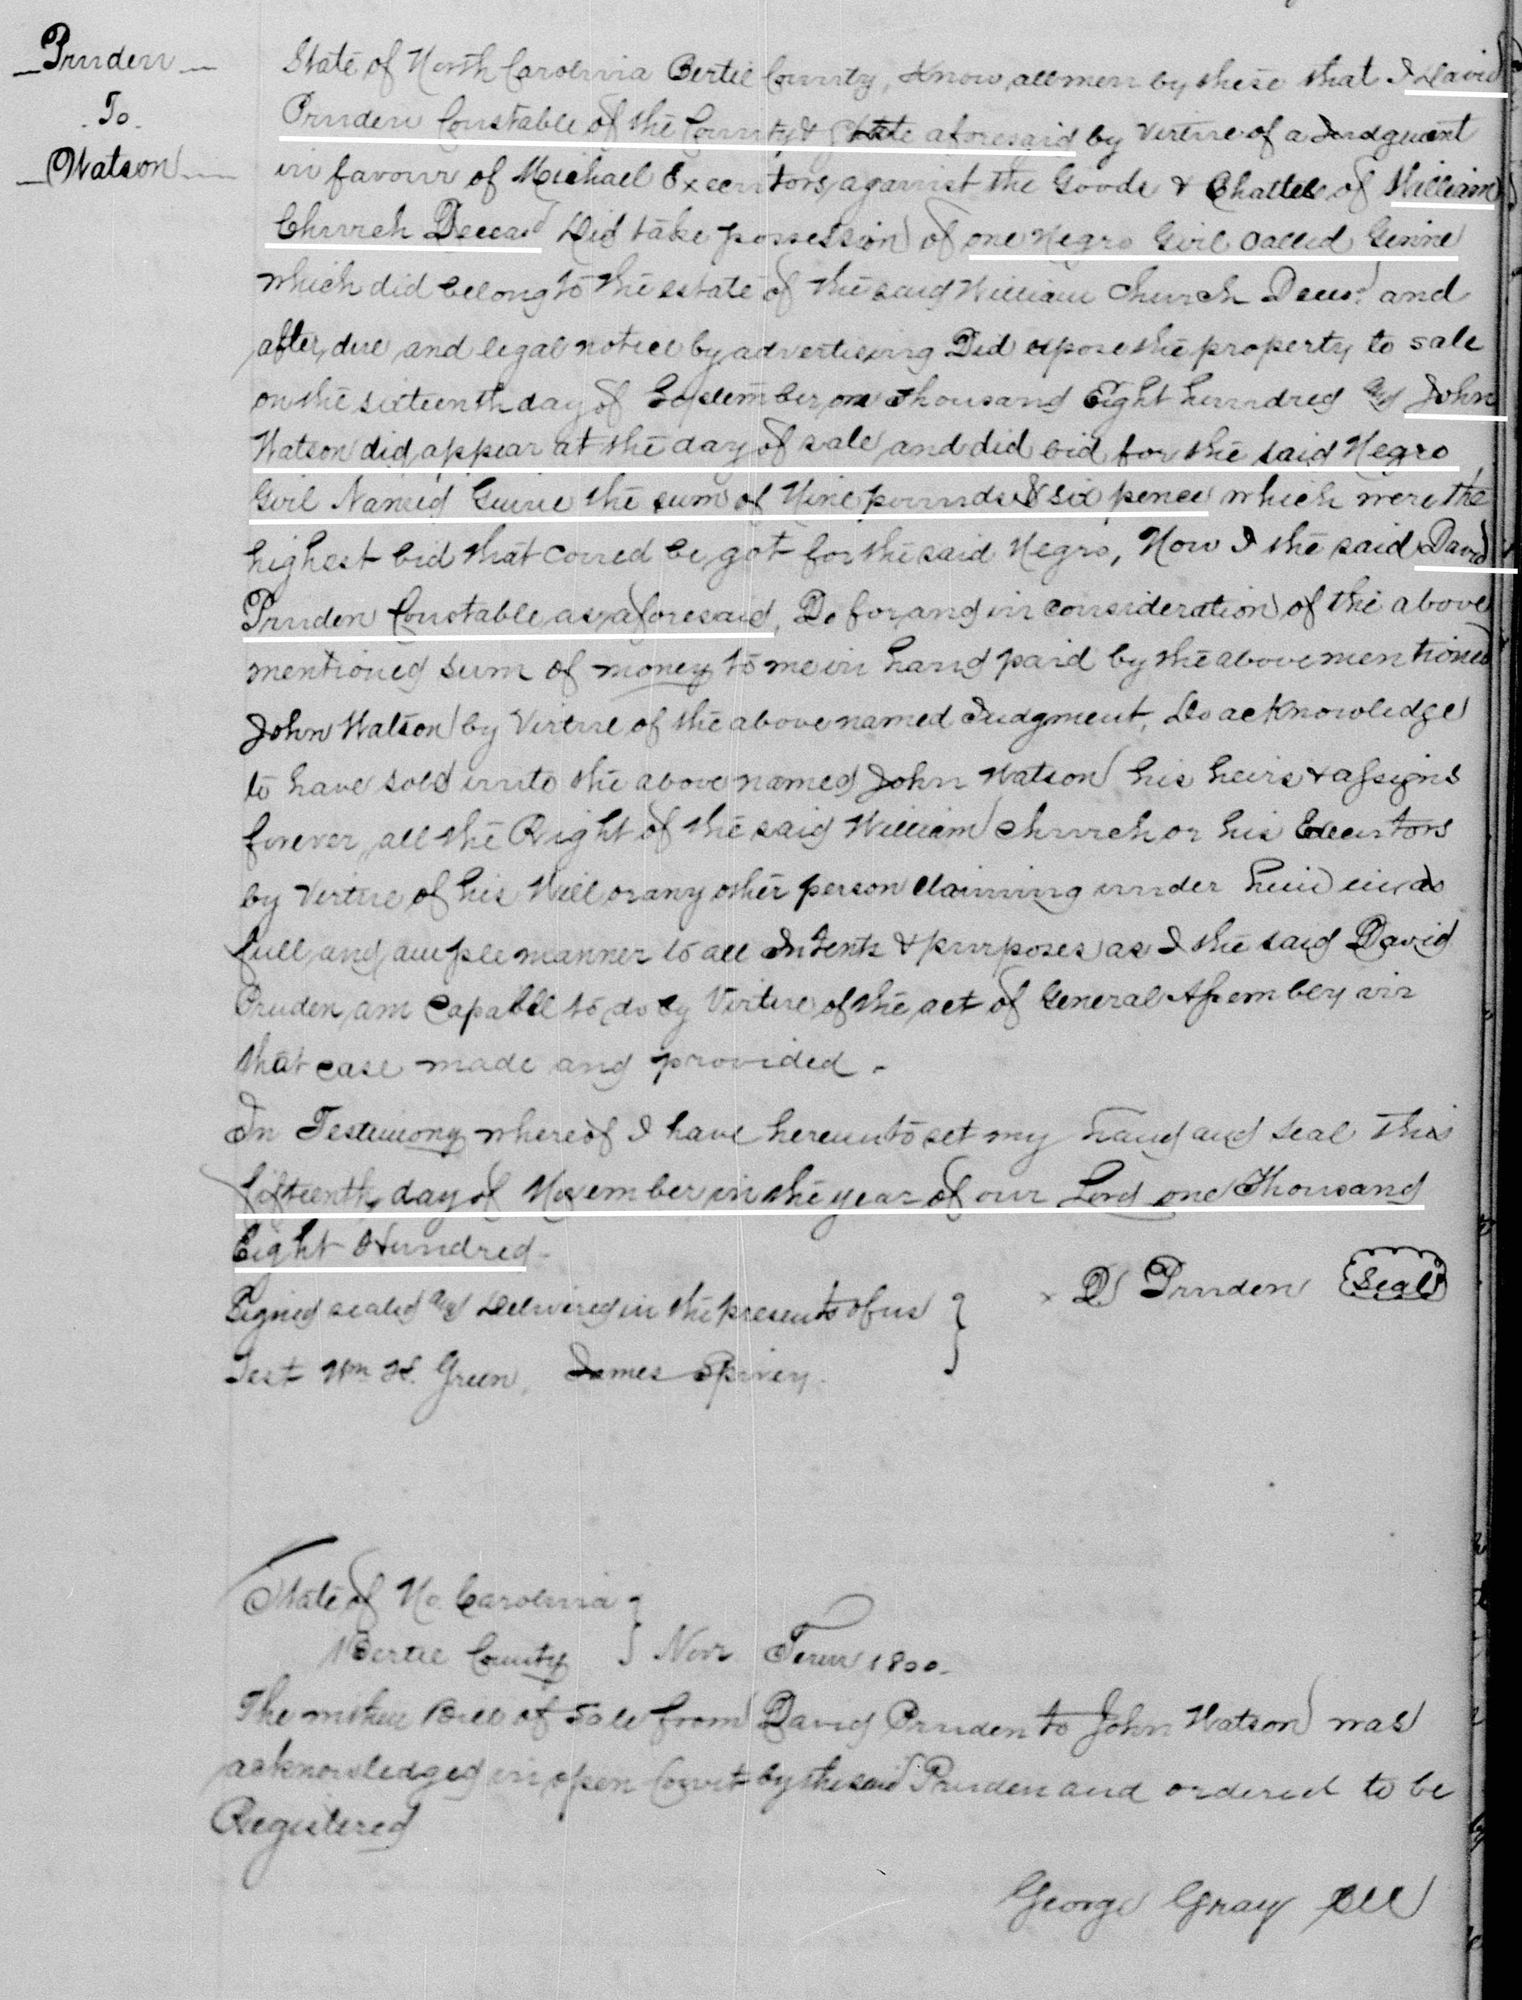 Pruden
To
Watson
State of North Carolina Bertie County, Know all men by these that I David
Pruden Constable of the County & State aforesaid by Virtue of a Judgment
in favour of Michael Executors against the Goods & Chattels of William
Church Deceasd Did take possession of one Negro Girl called Genine
which did belong to the estate of the said William Church Decsd and
after due and legal notice by advertising Did expose the property to sale
on the sixteenth day of September one thousand Eight hundred and John
Watson did appear at the day of sale and did bid for the said Negro
Girl Named Guine the sum of Nine pounds & six pence which were the
highest bid that coured be got for the said Negro, Now I the said David
Pruden Constable as aforesaid, Do for and in consideration of the above
mentioned sum of money to me in hand paid by the above mentioned
John Watson by Virtue of the above named Judgment, Do acknowledge
to have sold unto the above named John Watson his heirs & assigns
forever, all the Right of the said William Church or his Executors
by Virtue of his Will or any other person claiming under him in as
full and ample manner to all Intents & purposes as I the said David
Pruden am Capable to do by Virtue of the act of General Assembly in
that case made and provided.
In Testimony whereof I have hereunto set my hand and seal this
fifteenth day of November in the year of our Lord one Thousand
Eight Hundred.
Signed sealed and Delivered in the presents of us
D Pruden Seal
Test Wm H. Green, James Spivey.
State of No. Carolina
Bertie County Novr Term 1800.
The within Bill of Sale from David Pruden to John Watson was
acknowledged in open Court by the said Pruden and ordered to be
Registered
George Gray